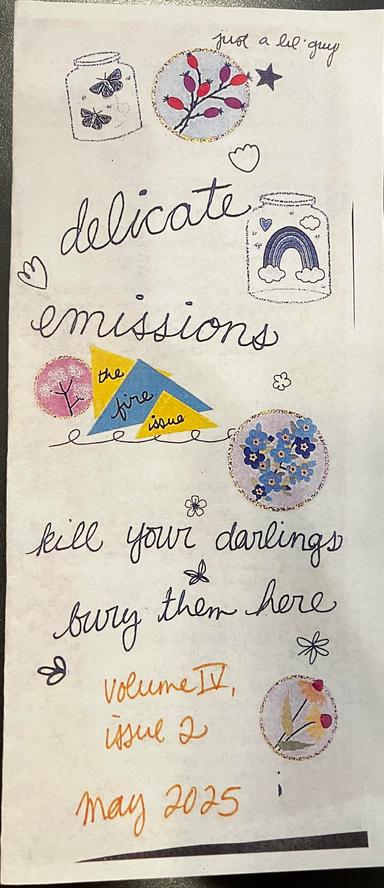 just a lil' guy
delicate
emissions
the
fire
issue
kill your darlings
bury them here
volume IV,
issue 2
may 2025